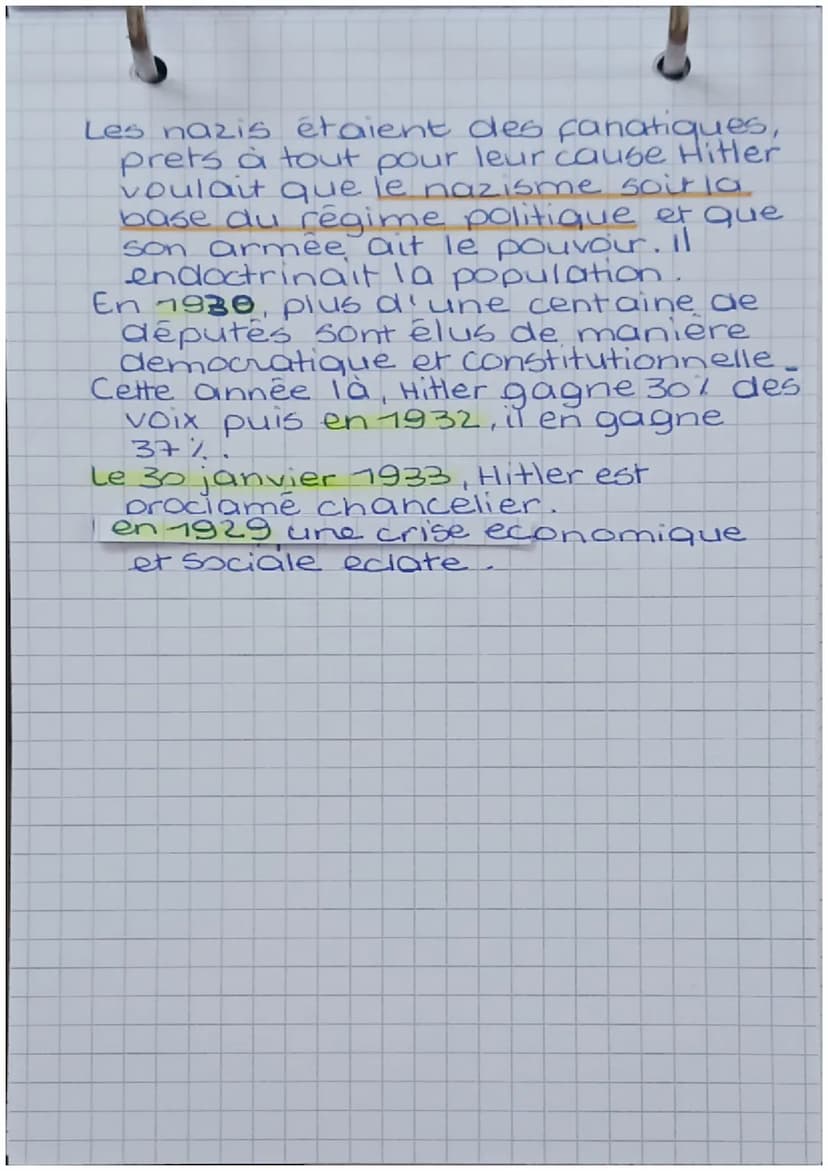 Les nazis étaient des fanatiques,
prets à tout pour leur cause Hitler
voulait que le nazisme soit la
base du régime politique et que
son armée ait le pouvoir. Il
endoctrinait la population.
En 1930, plus d'une centaine de
députés sont élus de manière
democratique et constitutionnelle.
Cette année là, Hitler gagne 30% des
voix puis en 1932, il en gagne
37%.
Le 30 janvier 1933, Hitler est
proclamé chancelier.
en 1929 une crise economique
et sociale eclate.